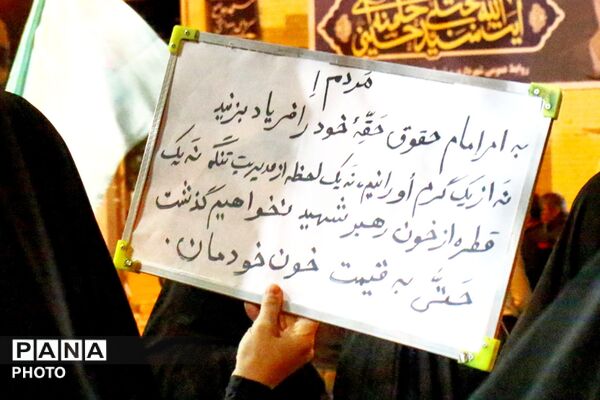 مَردم!
به امر امام حقوق حَقّهٔ خود را فریاد بزنید
نَه از یک گرم اورانیم، نَه یک لحظه از مدیریتِ تنگه نَه یک
قطره از خون رهبر شهید نخواهیم گذشت
حتّی به قیمت خون خودمان.
PANA
PHOTO